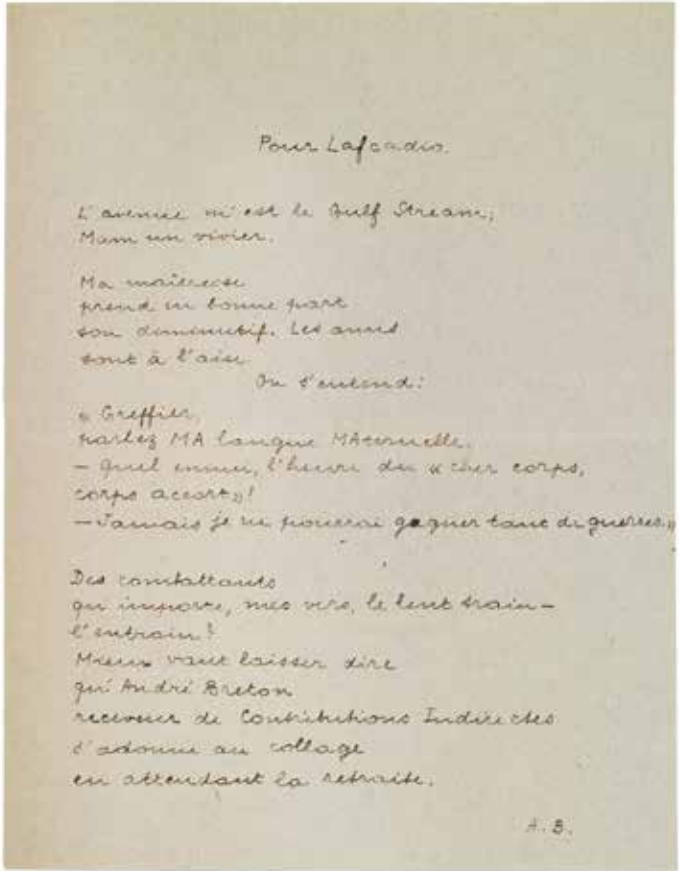 Pour Lafcadio.
L'avenue m'est le Gulf Stream;
Mam un vivier.
Ma maîtresse
prend en bonne part
son diminutif. Les amis
sont à l'aise
On s'entend:
« Greffier,
parlez MA langue MAternelle.
– Quel ennui, l'heure du « cher corps,
corps accort »!
– Jamais je ne pourrai gagner tant de guerres. »
Des combattants
qu'importe, mes vers, le lent train –
l'entrain!
Mieux vaut laisser dire
qu'André Breton
receveur de Contributions Indirectes
s'adonne au collage
en attendant la retraite.
A. B.